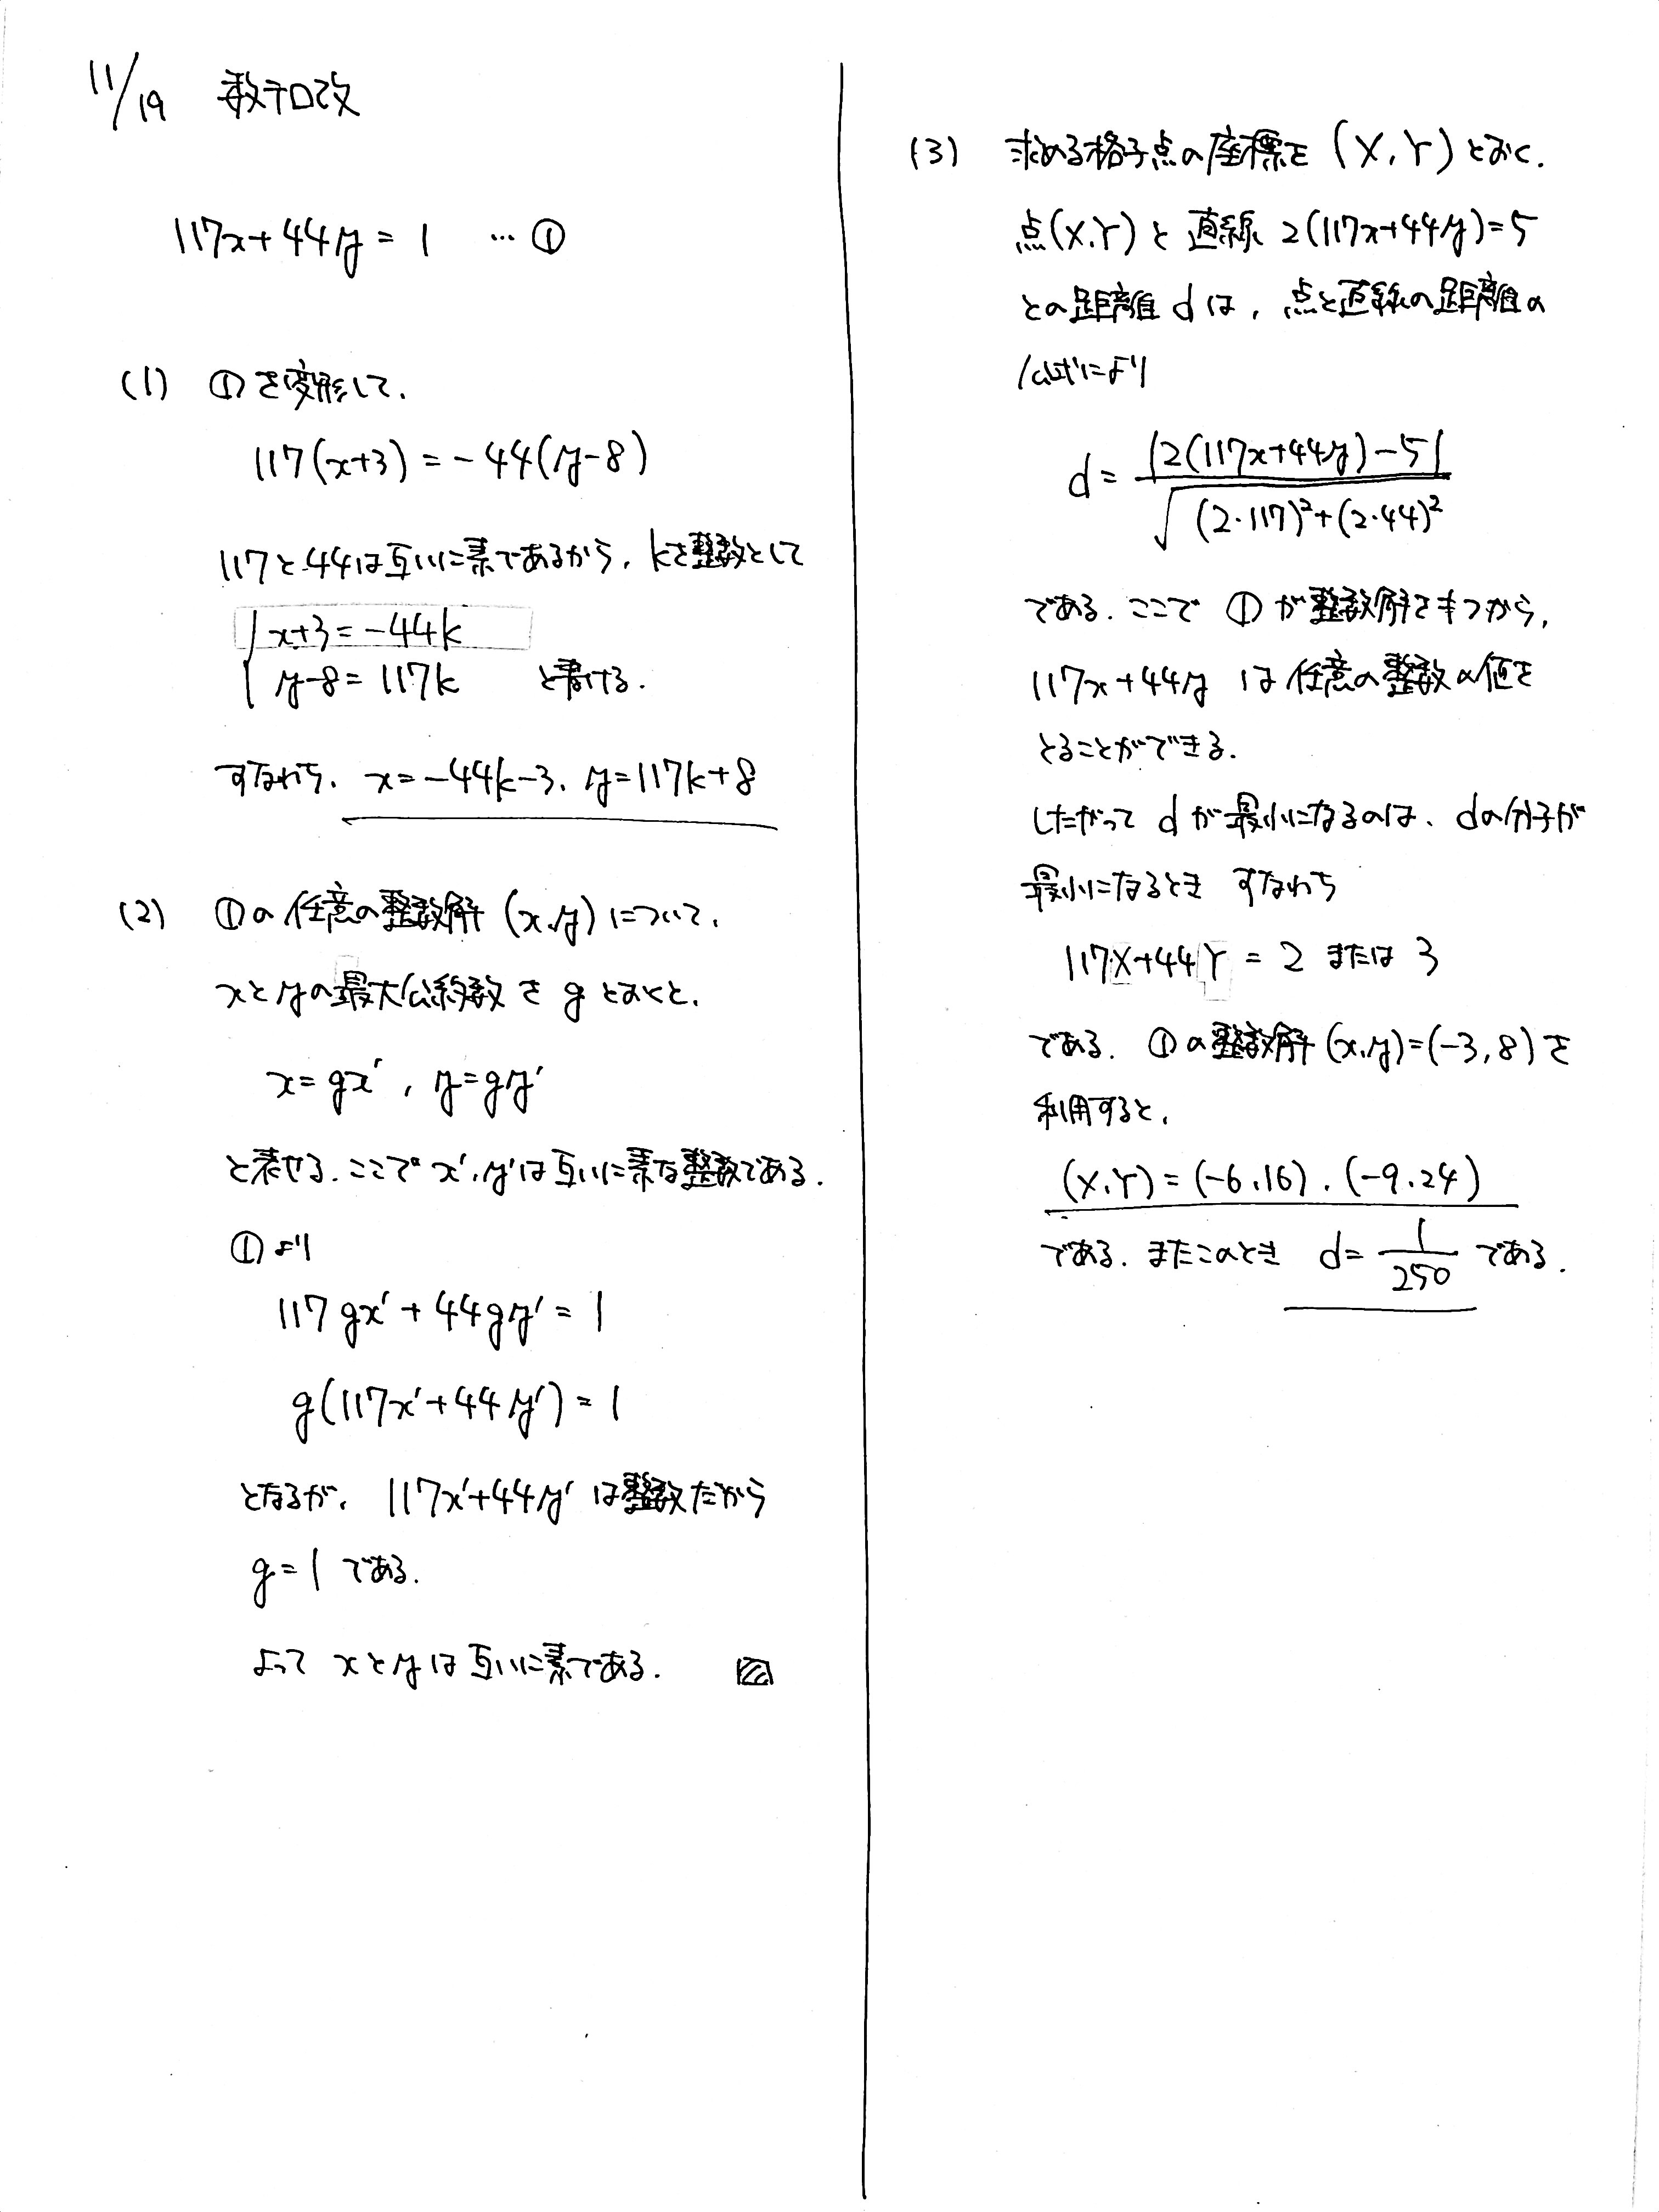 11/19 数テロ改
117x+44y=1 …①
(1) ①を変形して,
117(x+3)=-44(y-8)
117と44は互いに素であるから, kを整数として
{x+3=-44k
y-8=117k と書ける.
すなわち, x=-44k-3, y=117k+8
(2) ①の任意の整数解(x,y)について,
xとyの最大公約数をgとおくと,
x=gx', y=gy'
と表せる. ここでx',y'は互いに素な整数である.
①より
117gx'+44gy'=1
g(117x'+44y')=1
となるが, 117x'+44y'は整数だから
g=1である.
よってxとyは互いに素である.
(3) 求める格子点の座標を(X,Y)とおく.
点(X,Y)と直線2(117x+44y)=5
との距離dは, 点と直線の距離の
公式により
d=|2(117x+44y)-5|/√((2·117)²+(2·44)²)
である. ここで①が整数解をもつから,
117x+44yは任意の整数の値を
とることができる.
したがってdが最小になるのは, dの分子が
最小になるとき すなわち
117X+44Y=2または3
である. ①の整数解(x,y)=(-3,8)を
利用すると,
(X,Y)=(-6,16), (-9,24)
である. またこのとき d=1/250 である.